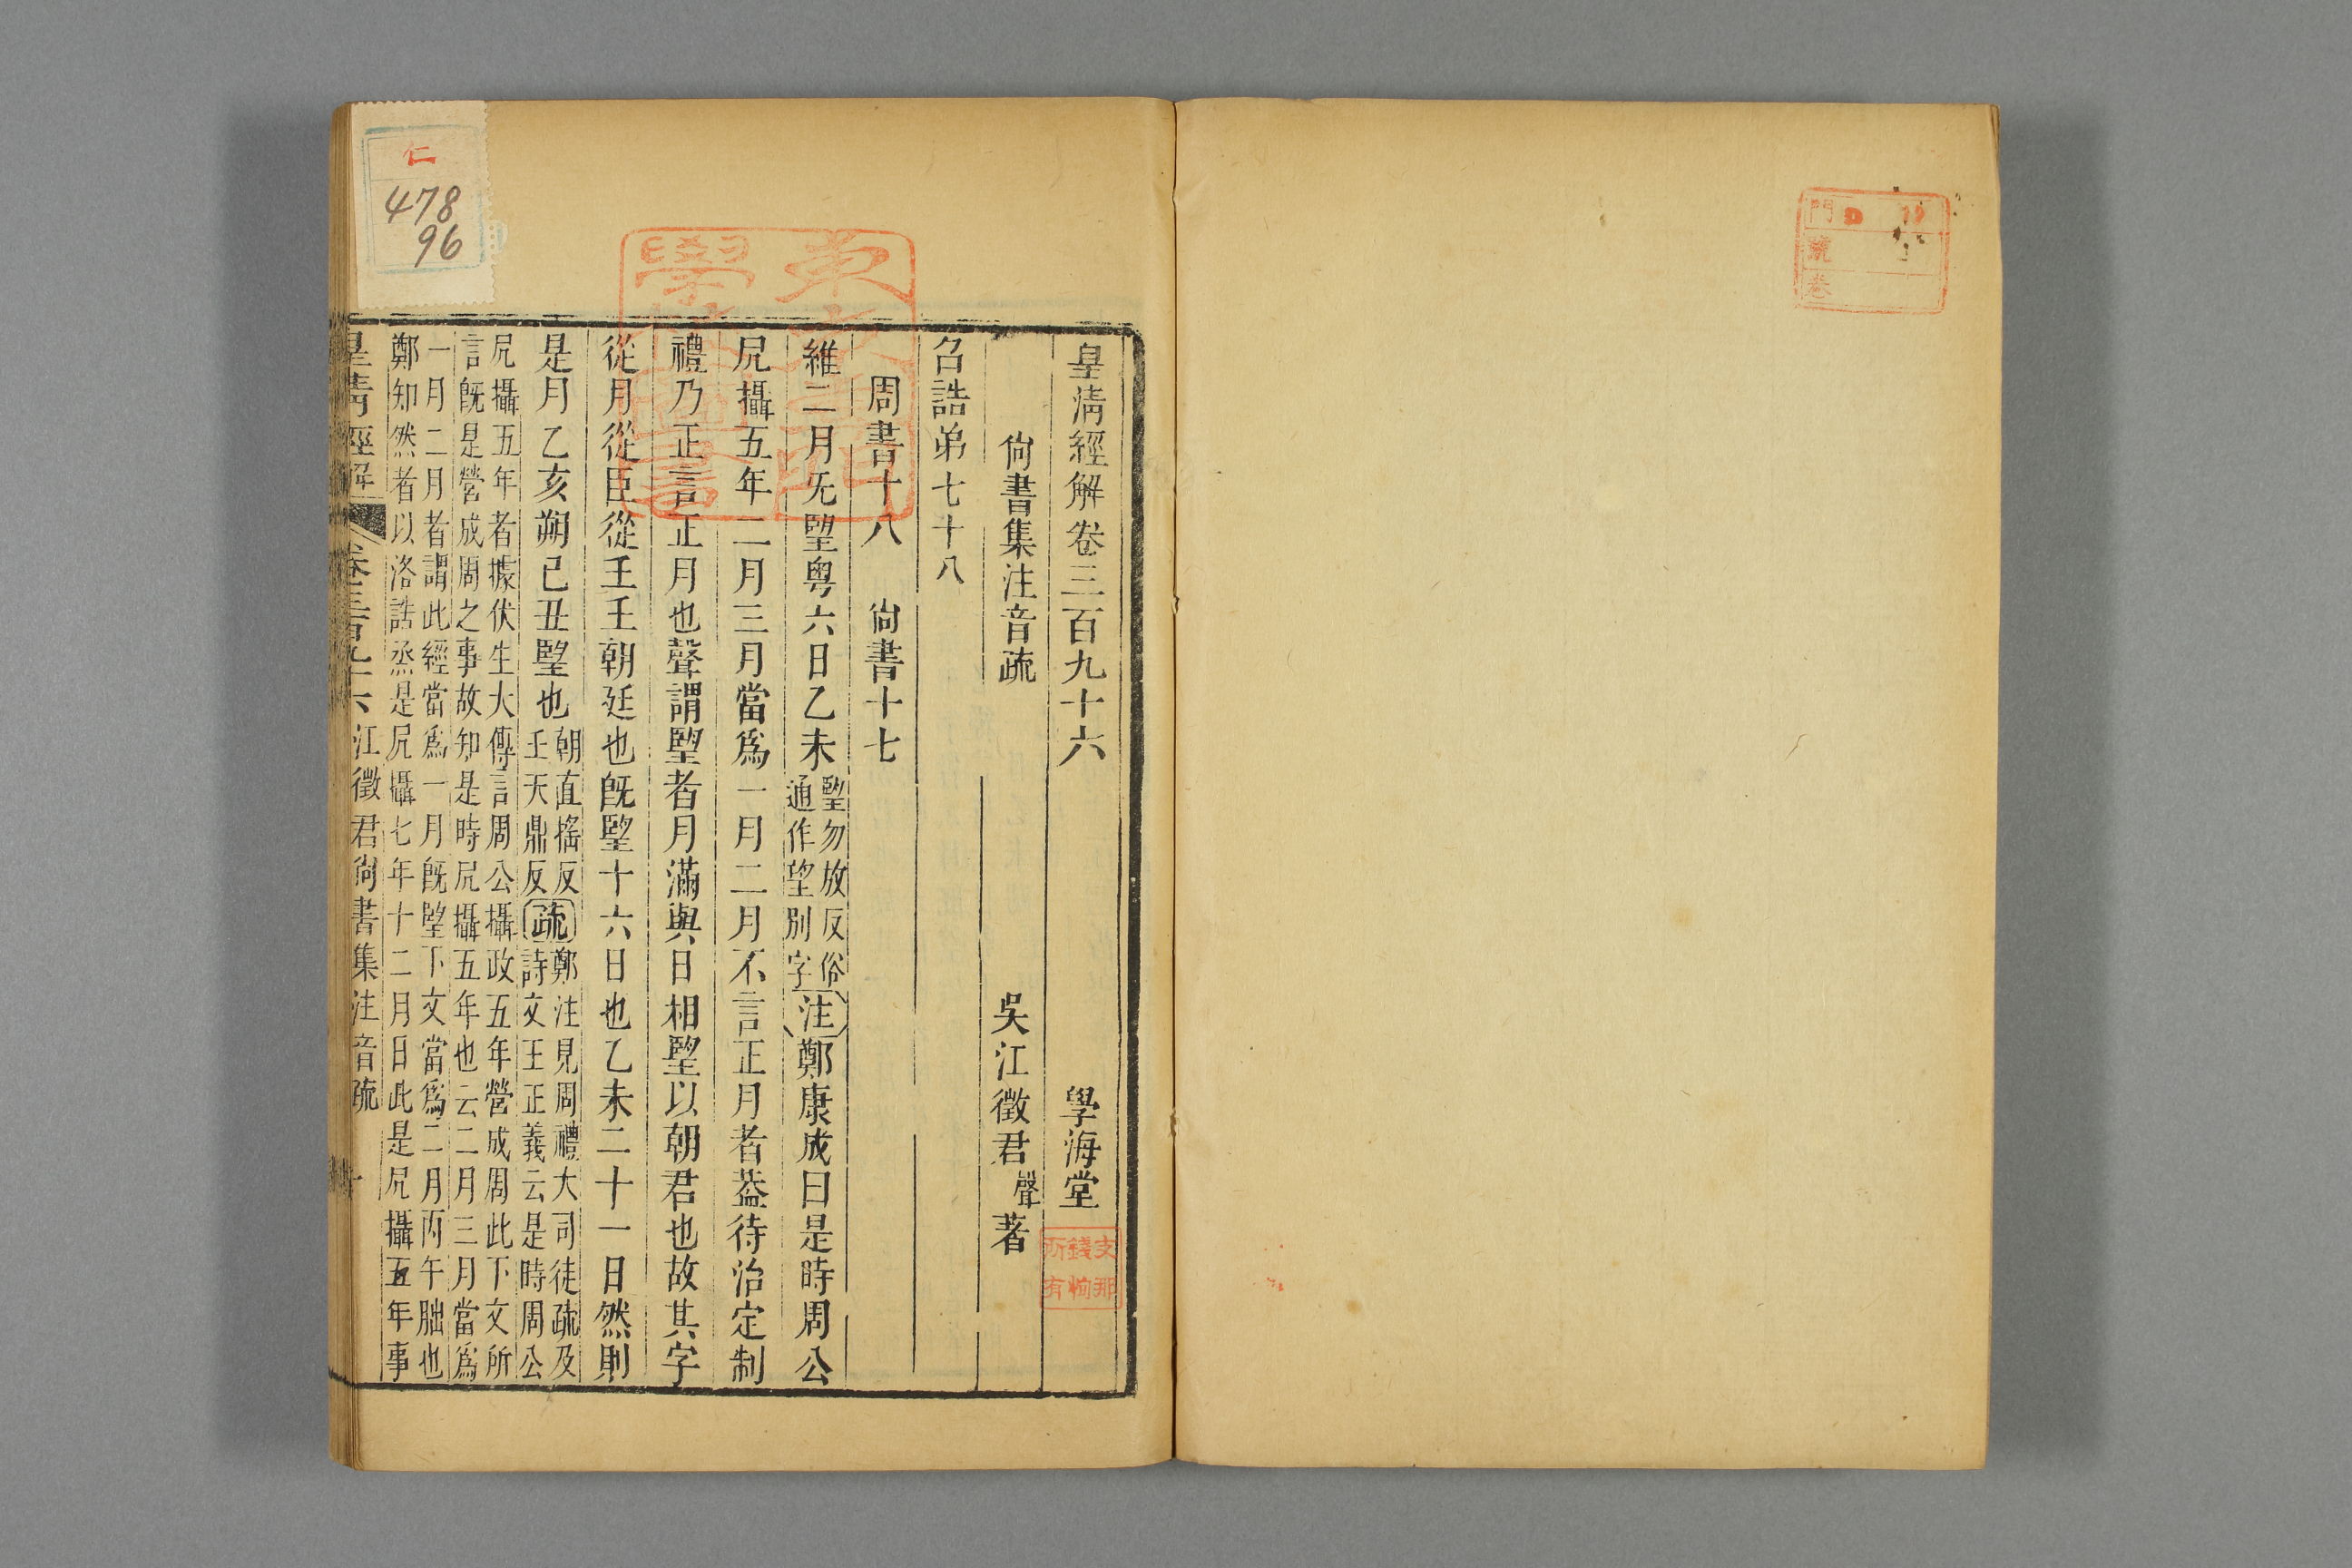 門
號
卷
皇清經解卷三百九十六
學海堂
尙書集注音疏
吳江徵君聲著
召誥弟七十八
周書十八
尙書十七
維二月旡朢粤六日乙未
朢勿放反俗
通作望別字
注
鄭康成曰是時周公
凥攝五年二月三月當爲一月二月不言正月者葢待治定制
禮乃正言正月也聲謂朢者月滿與日相朢以朝君也故其字
從月從臣從𡈼𡈼朝廷也旣朢十六日也乙未二十一日然則
是月乙亥朔己丑朢也
朝直搖反
𡈼天鼎反
疏
鄭注見周禮大司徒疏及
詩文王正義云是時周公
凥攝五年者據伏生大傳言周公攝政五年營成周此下文所
言旣是營成周之事故知是時凥攝五年也云二月三月當爲
一月二月者謂此經當爲一月旣朢下文當爲二月丙午朏也
鄭知然者以洛誥烝是凥攝七年十二月日此是凥攝五年事
皇清經解
卷三百九十六
江徵君尙書集注音疏
一
支那
錢恂
所有
仁
478
96